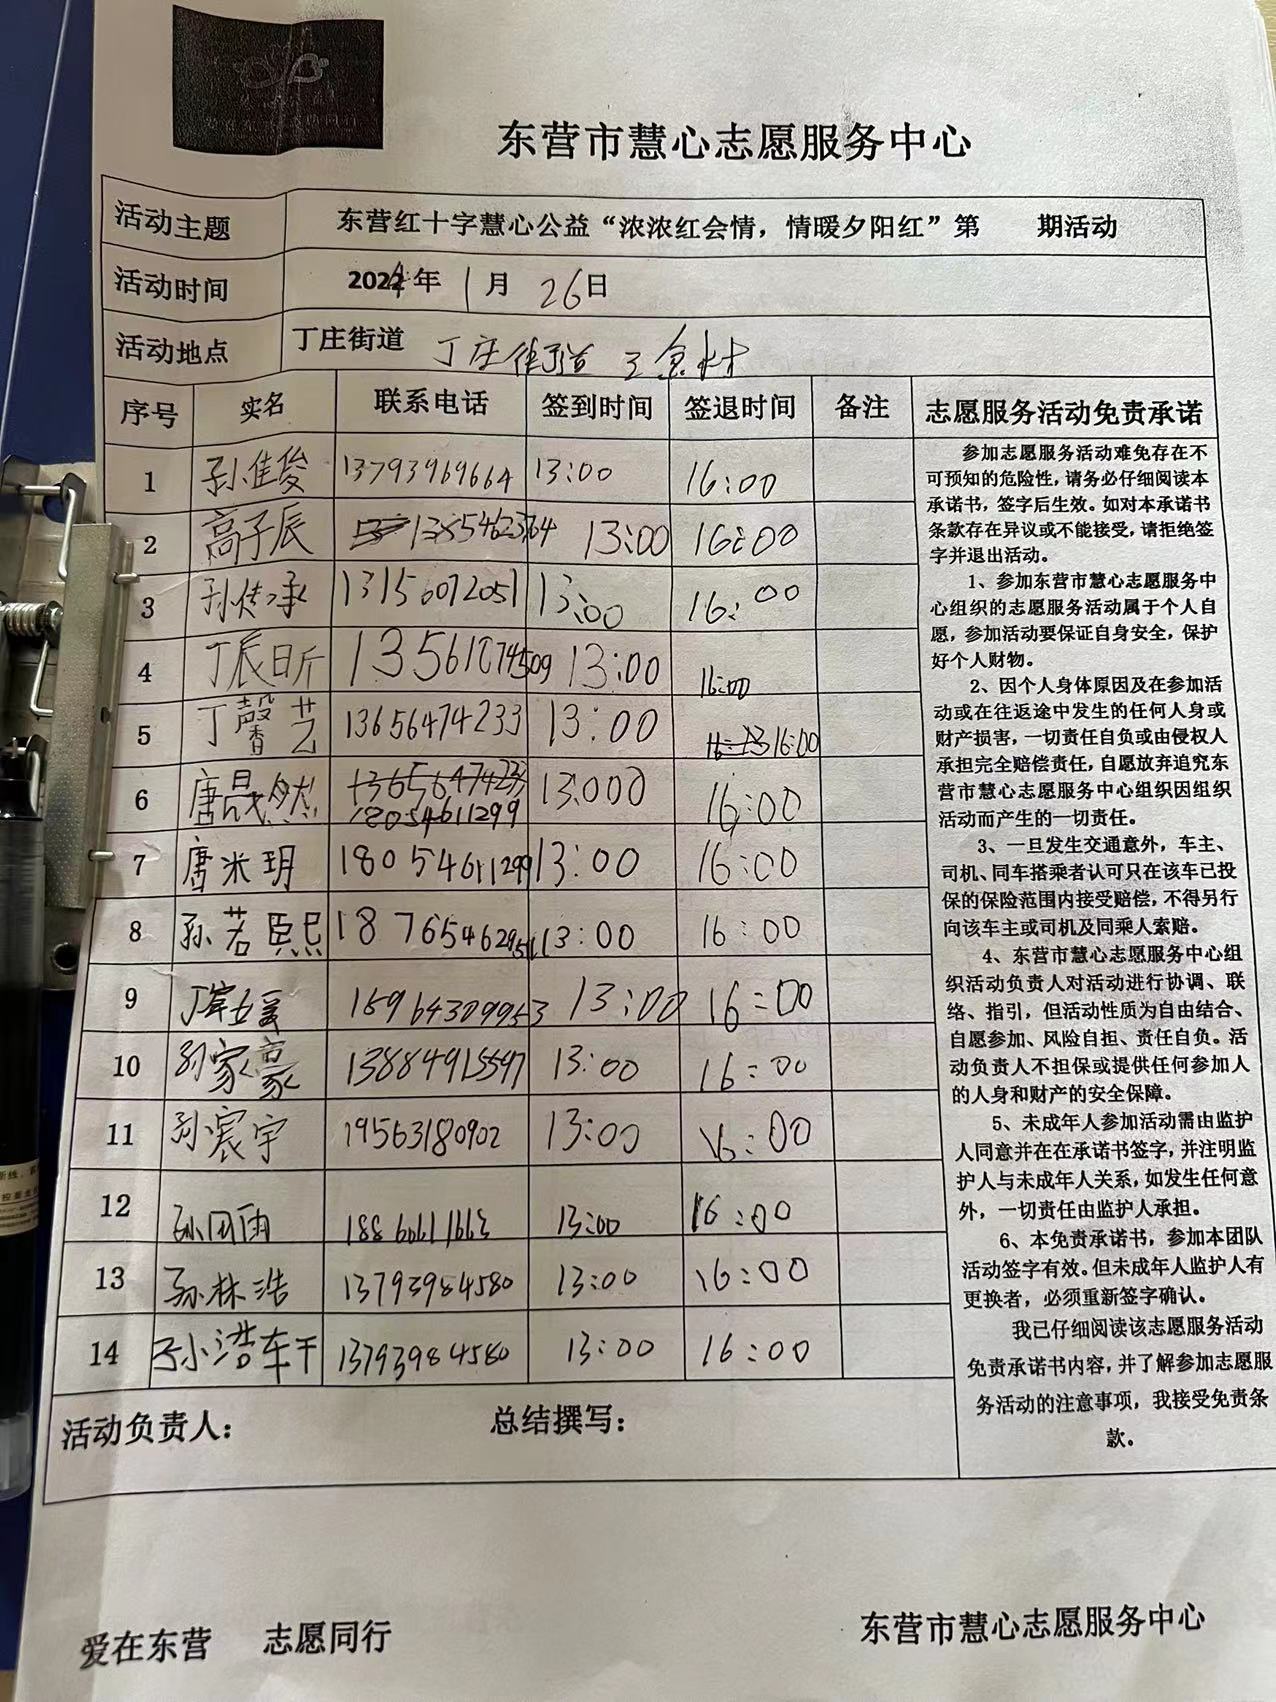 东营市慧心志愿服务中心
活动主题 东营红十字慧心公益“浓浓红会情，情暖夕阳红”第 期活动
活动时间 2024年 1月 26日
活动地点 丁庄街道 丁庄街道 王 村
序号 实名 联系电话 签到时间 签退时间 备注 志愿服务活动免责承诺
1 孙佳俊 13793969664 13:00 16:00
2 高子辰 13:00 16:00
3 孙传承 13156072051 13:00 16:00
4 丁辰昕 13:00 16:00
5 丁馨艺 13656474233 13:00 16:00
6 唐晟然 13656474233 18054611299 13:000 16:00
7 唐米玥 18054611299 13:00 16:00
8 孙若熙 13:00 16:00
9 13:00 16:00
10 孙家豪 13884915597 13:00 16:00
11 孙寰宇 19563180902 13:00 16:00
12 孙同雨 13:00 16:00
13 孙林浩 13793984580 13:00 16:00
14 孙浩轩 13793984580 13:00 16:00
参加志愿服务活动难免存在不
可预知的危险性，请务必仔细阅读本
承诺书，签字后生效。如对本承诺书
条款存在异议或不能接受，请拒绝签
字并退出活动。
1、参加东营市慧心志愿服务中
心组织的志愿服务活动属于个人自
愿，参加活动要保证自身安全，保护
好个人财物。
2、因个人身体原因及在参加活
动或在往返途中发生的任何人身或
财产损害，一切责任自负或由侵权人
承担完全赔偿责任，自愿放弃追究东
营市慧心志愿服务中心组织因组织
活动而产生的一切责任。
3、一旦发生交通意外，车主、
司机、同车搭乘者认可只在该车已投
保的保险范围内接受赔偿，不得另行
向该车主或司机及同乘人索赔。
4、东营市慧心志愿服务中心组
织活动负责人对活动进行协调、联
络、指引，但活动性质为自由结合、
自愿参加、风险自担、责任自负。活
动负责人不担保或提供任何参加人
的人身和财产的安全保障。
5、未成年人参加活动需由监护
人同意并在在承诺书签字，并注明监
护人与未成年人关系，如发生任何意
外，一切责任由监护人承担。
6、本免责承诺书，参加本团队
活动签字有效。但未成年人监护人有
更换者，必须重新签字确认。
我已仔细阅读该志愿服务活动
免责承诺书内容，并了解参加志愿服
务活动的注意事项，我接受免责条
款。
活动负责人： 总结撰写：
爱在东营 志愿同行 东营市慧心志愿服务中心